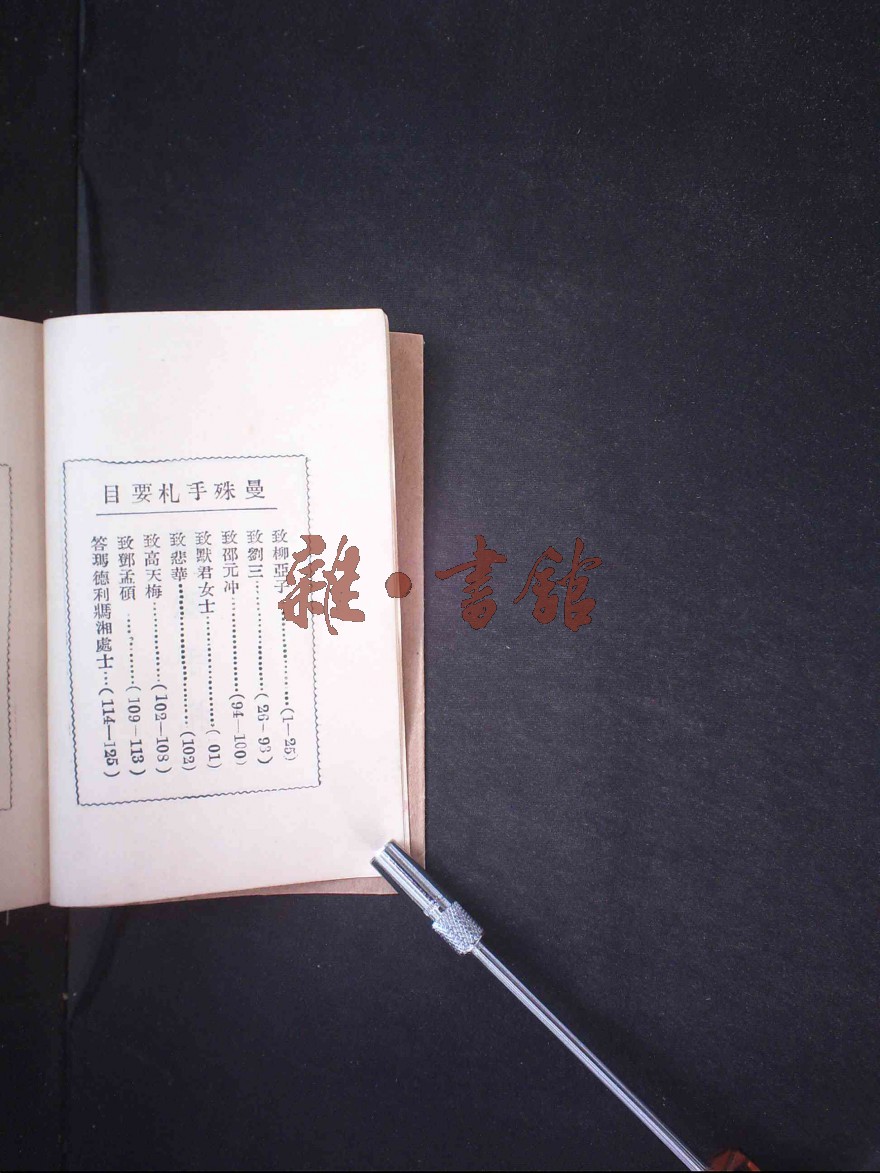 曼殊手札要目
致柳亞子……(1—25)
致劉三……(26—93)
致邵元冲……(94—100)
致默君女士……( 01)
致悲華……(102)
致高天梅……(102—108)
致鄧孟碩……(109—113)
答瑪德利馮湘處士…(114—125)
雜·書館